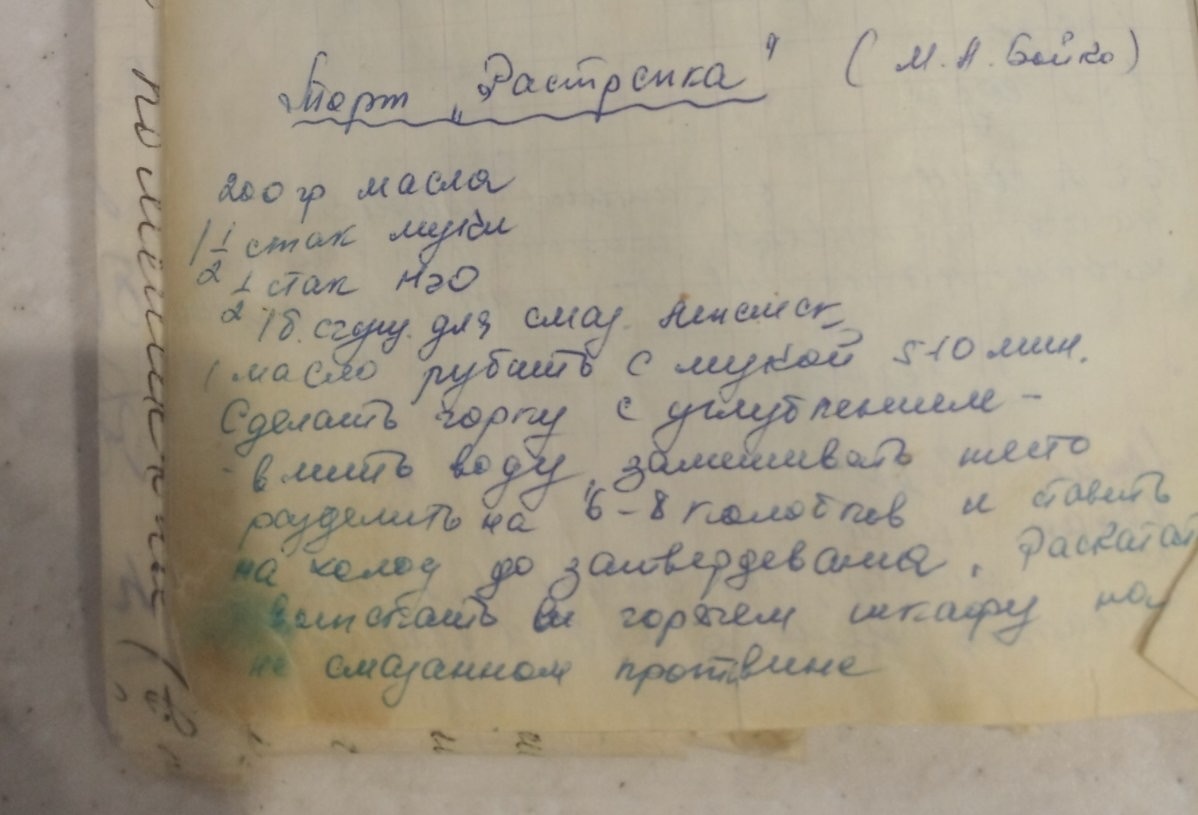 Торт "Растрепка" (М.А. Бойко)
200 гр масла
1 1/2 стак муки
1/2 стак H2O
1 б. сгущ. для смаз.
масло рубить с мукой 5-10 мин.
Сделать горку с углублением -
- влить воду, замешивать тесто
разделить на 6-8 колобков и ставить
на холод до затвердевания. Раскатат
выпекать в горячем шкафу на
не смазанном противне